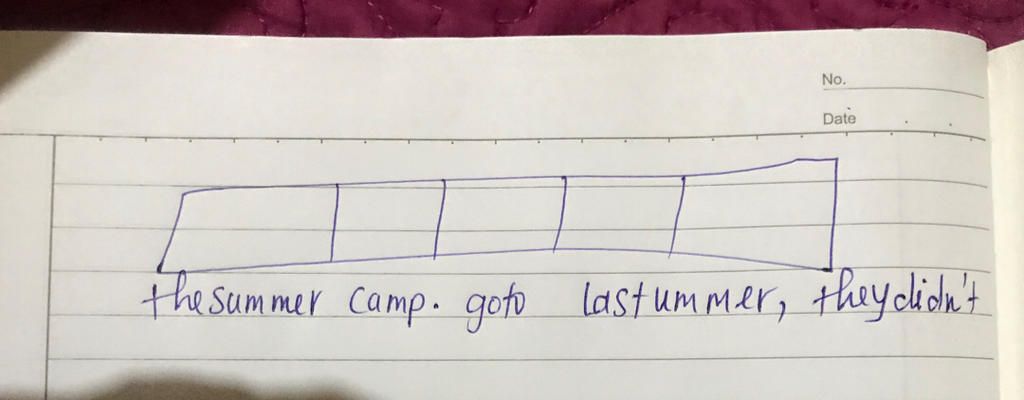 No.
Date
the summer camp. go to last ummer, they didn't